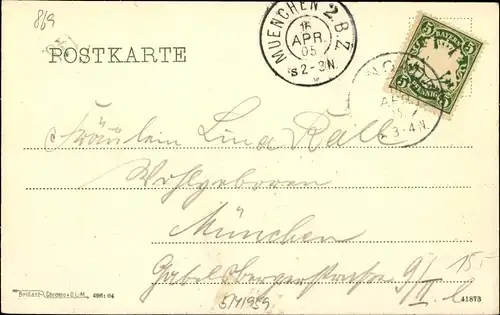 869
POSTKARTE
MUENCHEN 2.B.Z.
16
APR.
05
2-3N.
BAYERN
5 5
PFENNIG
APR
3-4N.
Fräulein Lina Rall
Wohlgeboren
München
Gabelsbergerstraße 9/II l
15.-
51/1959
498:04
41873